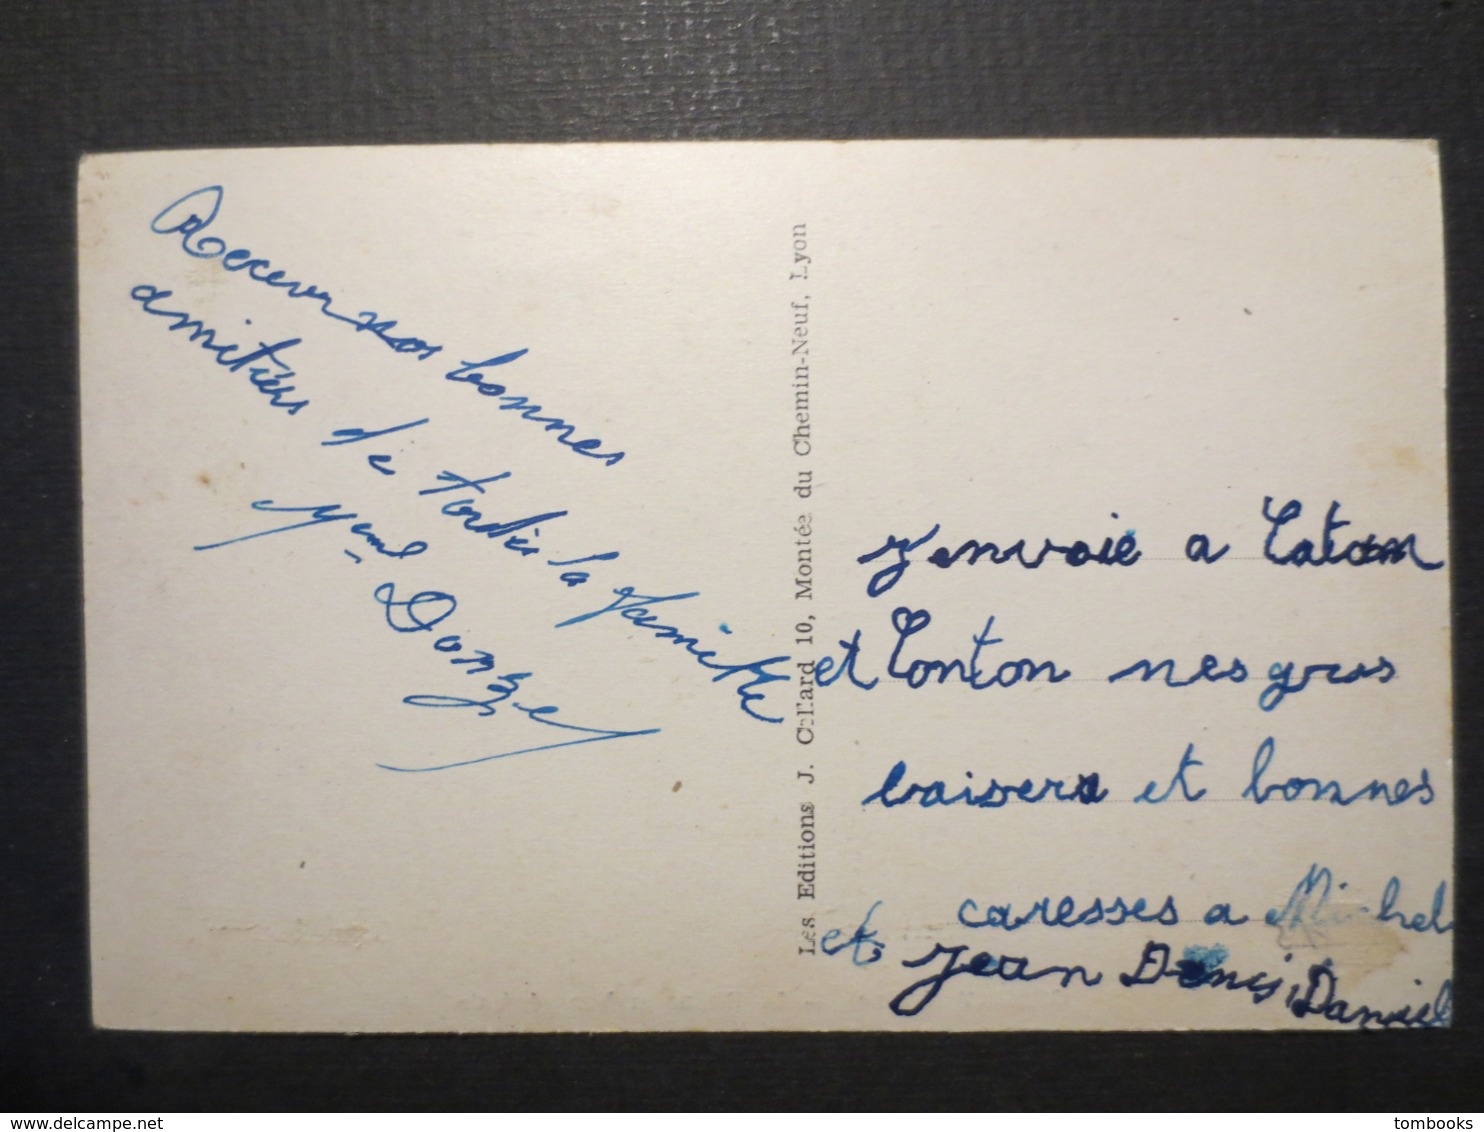 Recever nos bonnes
amitiés de toutes la famille
Mme Donze
Les Editions J. Collard 10, Montée du Chemin-Neuf, Lyon
J'envoie a Taton
et Tonton mes gros
baisers et bonnes
caresses a Michel
et Jean Denis, Daniel
delcampe.net
tombooks